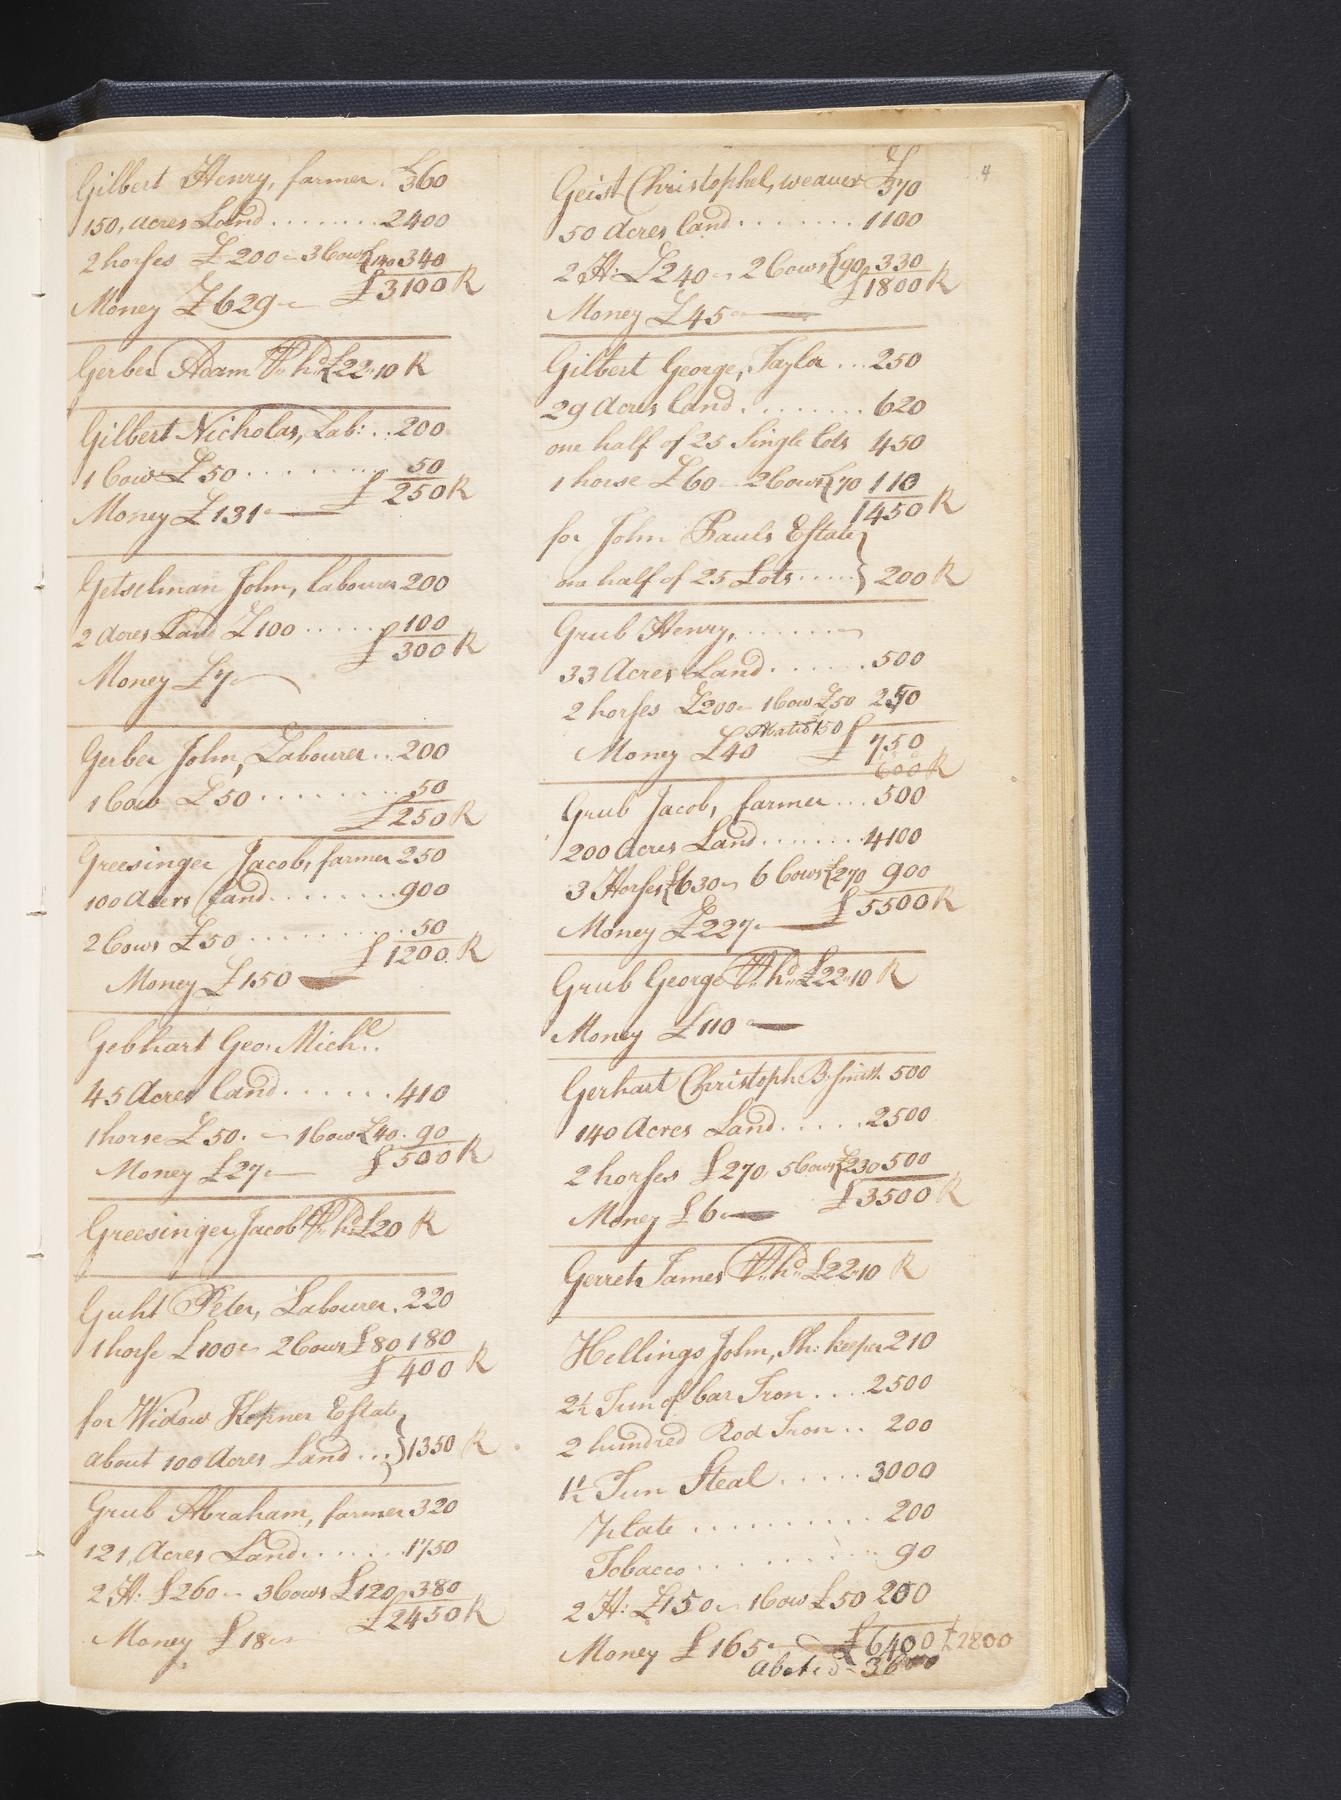 Gilbert Henry, farmer. £360
150, acres Land ........ 2400
2 horses £200 - 3 Cows £140 340
£3100 R
Money £629
Gerber Adam Pr. hd £22"10 R
Gilbert Nicholas, Lab: .. 200
1 Cow £50 ......... 50
£250 R
Money £131
Getselman John, labourer 200
2 Acres Land £100 ..... 100
£300 R
Money £7
Gerber John, Labourer .. 200
1 Cow £50 ........ 50
£250 R
Greesinger Jacob, farmer 250
100 Acers land ........ 900
2 Cows £50 .......... 50
£1200 R
Money £150
Gebhart Geo: Michll..
45 Acres land ...... 410
1 horse £50. - 1 Cow £40. 90
£500 R
Money £27
Greesinger Jacob Pr. hd £20 R
Guht Peter, Labourer. 220
1 horse £100 2 Cows £80 180
£400 R
for Widow Kepner Estate
about 100 Acres Land ... } 1350 R
Grub Abraham, farmer 320
121, Acres Land ...... 1750
2 H: £260 - 3 Cows £120, 380
£2450 R
Money £18
4
Geist Christophel, weaver £370
50 Acres land ........ 1100
2 H: £240 - 2 Cows £90 330
£1800 R
Money £45
Gilbert George, Taylor ... 250
29 Acres land ........ 620
one half of 25 Single lots 450
1 horse £60 - 2 Cows £70 110
1450 R
for John Pauls Estate }
one half of 25 Lots ..... } 200 R
Grub Henry, .......
33 Acres Land ...... 500
2 horses £200 - 1 Cow £50 250
Abated £150
Money £40 £750
600 R
Grub Jacob, farmer ... 500
200 Acres Land ....... 4100
3 Horses £630 - 6 Cows £270 900
£5500 R
Money £227
Grub George Pr. hd £22"10 R
Money £110
Gerhart Christoph. B. smith 500
140 Acres Land ..... 2500
2 horses £270, 5 Cows £230 500
£3500 R
Money £6
Gerreth James Pr. hd £22"10 R
Hellings John, Sh: keeper 210
2½ Tun of bar Iron .... 2500
2 hundred Rod Iron .. 200
1½ Tun Steal ..... 3000
Plate .......... 200
Tobacco .......... 90
2 H: £150 - 1 Cow £50 200
Money £165 £6400 £2800
abated - 3600